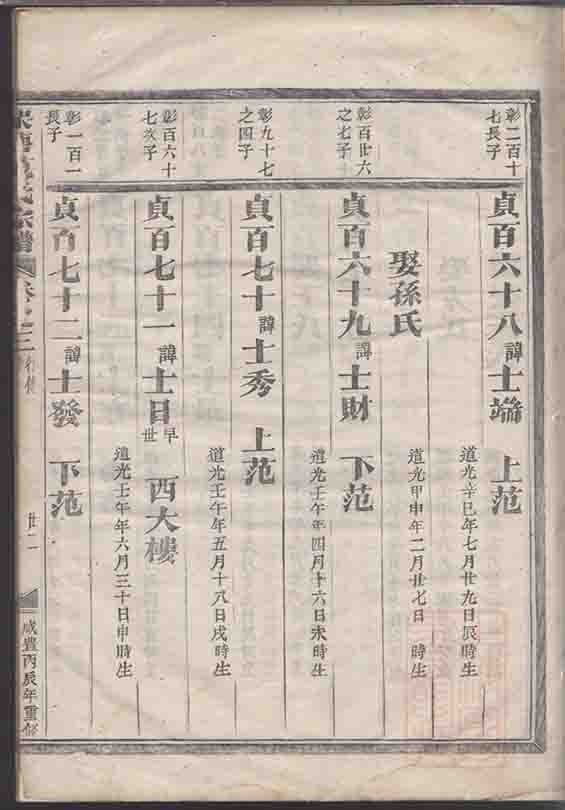 彰二百十
七長子
貞百六十八 諱士端 上范
道光辛巳年七月廿九日辰時生
娶孫氏
道光甲申年二月廿七日 時生
彰百廿六
之七子
貞百六十九 諱士財 下范
道光壬午年四月十六日未時生
彰九十七
之四子
貞百七十 諱士秀 上范
道光壬午年五月十八日戌時生
彰百六十
七次子
貞百七十一 諱士目 早世 西大樓
道光壬午年六月三十日申時生
彰一百一
長子
貞百七十二 諱士發 下范
氏宗譜 卷之三 行傳
廿二
咸豐丙辰年重修